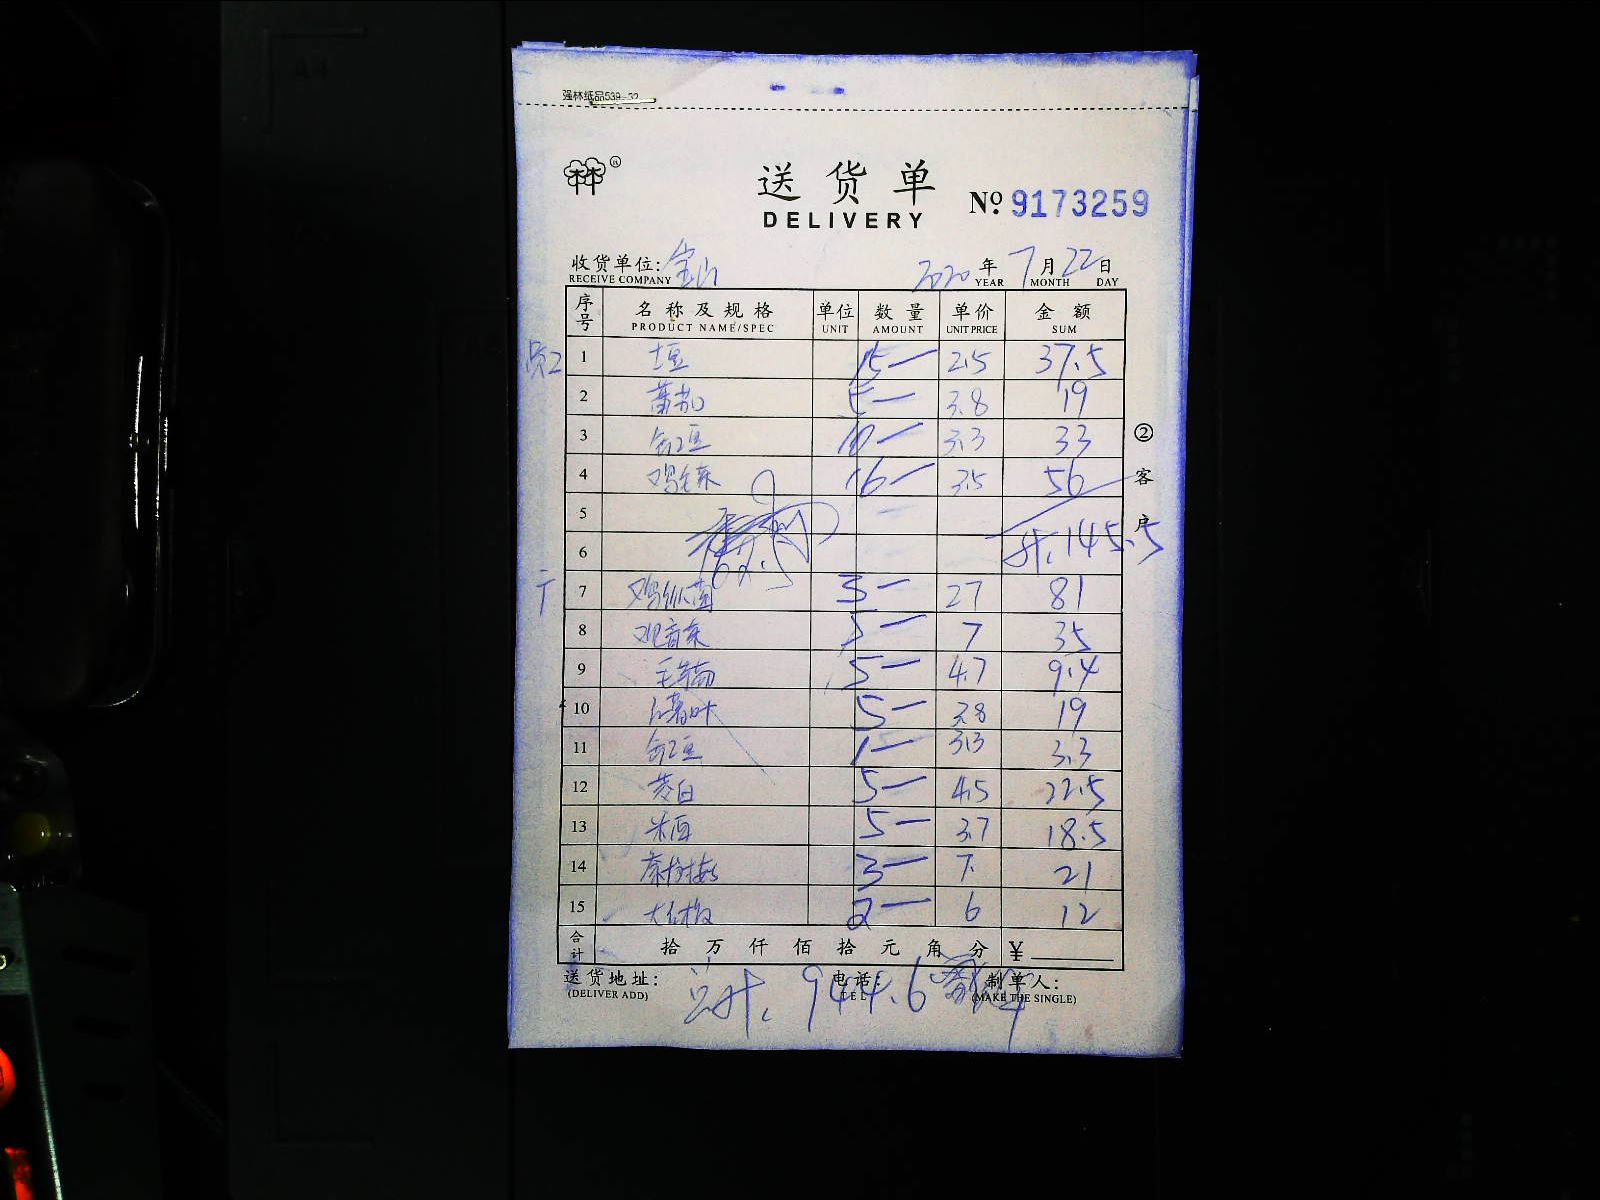 强林纸品539-32
送货单
DELIVERY
№ 9173259
收货单位: 宝山 2020 年 7 月 22 日
RECEIVE COMPANY YEAR MONTH DAY
序号 名称及规格 单位 数量 单价 金额
PRODUCT NAME/SPEC UNIT AMOUNT UNIT PRICE SUM
员工 1 土豆 15— 2.5 37.5
2 蕃茄 5— 3.8 19
3 缸豆 10— 3.3 33
② 客户
4 鸡毛菜 16— 3.5 56
5
6 计.145.5
7 鸡枞菌 3— 27 81
8 观音菜 5— 7 35
9 毛 5— 4.7 9.4
10 红薯叶 5— 3.8 19
11 缸豆 1— 3.3 3.3
12 茭白 5— 4.5 22.5
13 米豆 5— 3.7 18.5
14 3— 7. 21
15 2— 6 12
合计 拾 万 仟 佰 拾 元 角 分 ¥
送货地址: 电话: 制单人:
(DELIVER ADD) TEL (MAKE THE SINGLE)
总计. 944.6